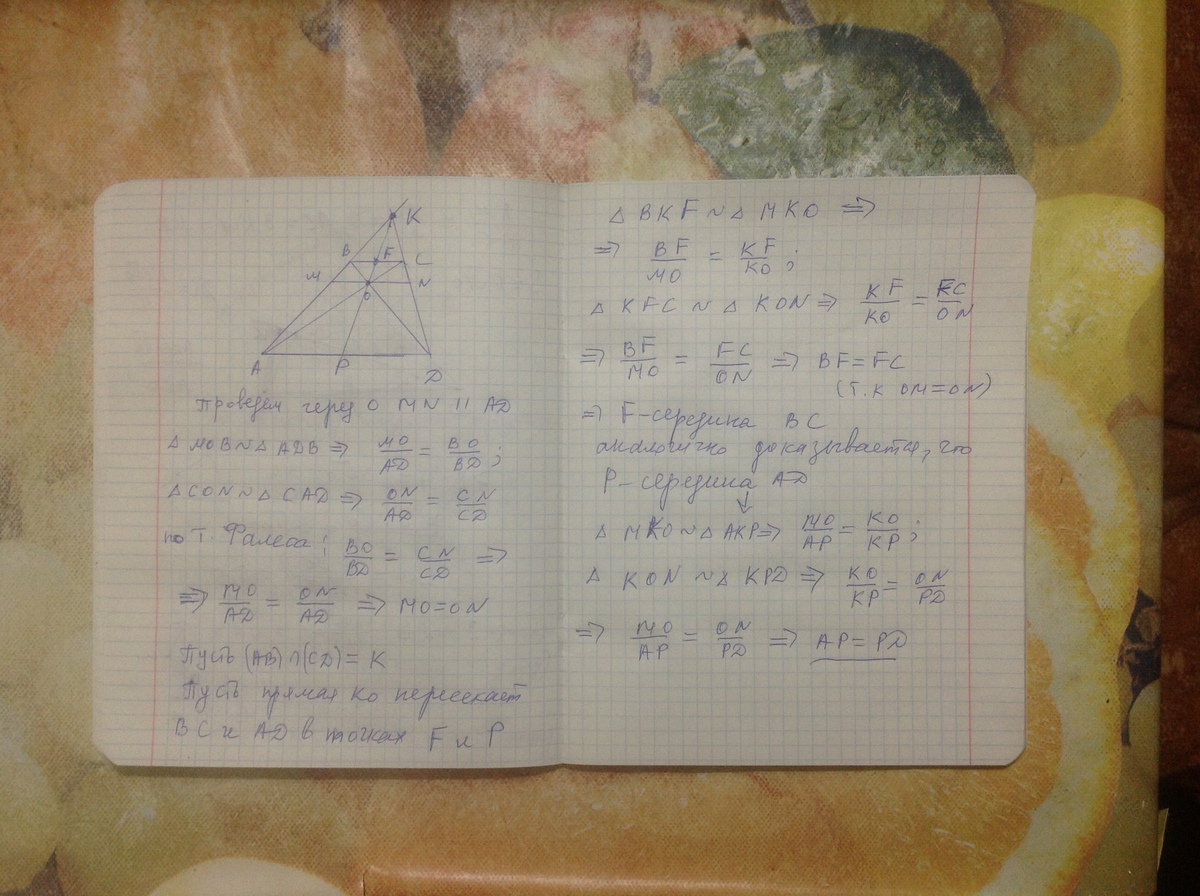 K
B F C
M N
O
A P D
Проведем через O MN || AD
△ MOB ~ △ ADB ⇒ MO/AD = BO/BD ;
△ CON ~ △ CAD ⇒ ON/AD = CN/CD
по т. Фалеса : BO/BD = CN/CD ⇒
⇒ MO/AD = ON/AD ⇒ MO=ON
Пусть (AB) ∩ (CD) = K
Пусть прямая KO пересекает
BC и AD в точках F и P
△ BKF ~ △ MKO ⇒
⇒ BF/MO = KF/KO ;
△ KFC ~ △ KON ⇒ KF/KO = FC/ON
⇒ BF/MO = FC/ON ⇒ BF=FC
(т.к OM=ON)
⇒ F-середина BC
аналогично доказывается, что
P-середина AD
↓
△ MKO ~ △ AKP ⇒ MO/AP = KO/KP ;
△ KON ~ △ KPD ⇒ KO/KP = ON/PD
⇒ MO/AP = ON/PD ⇒ AP=PD